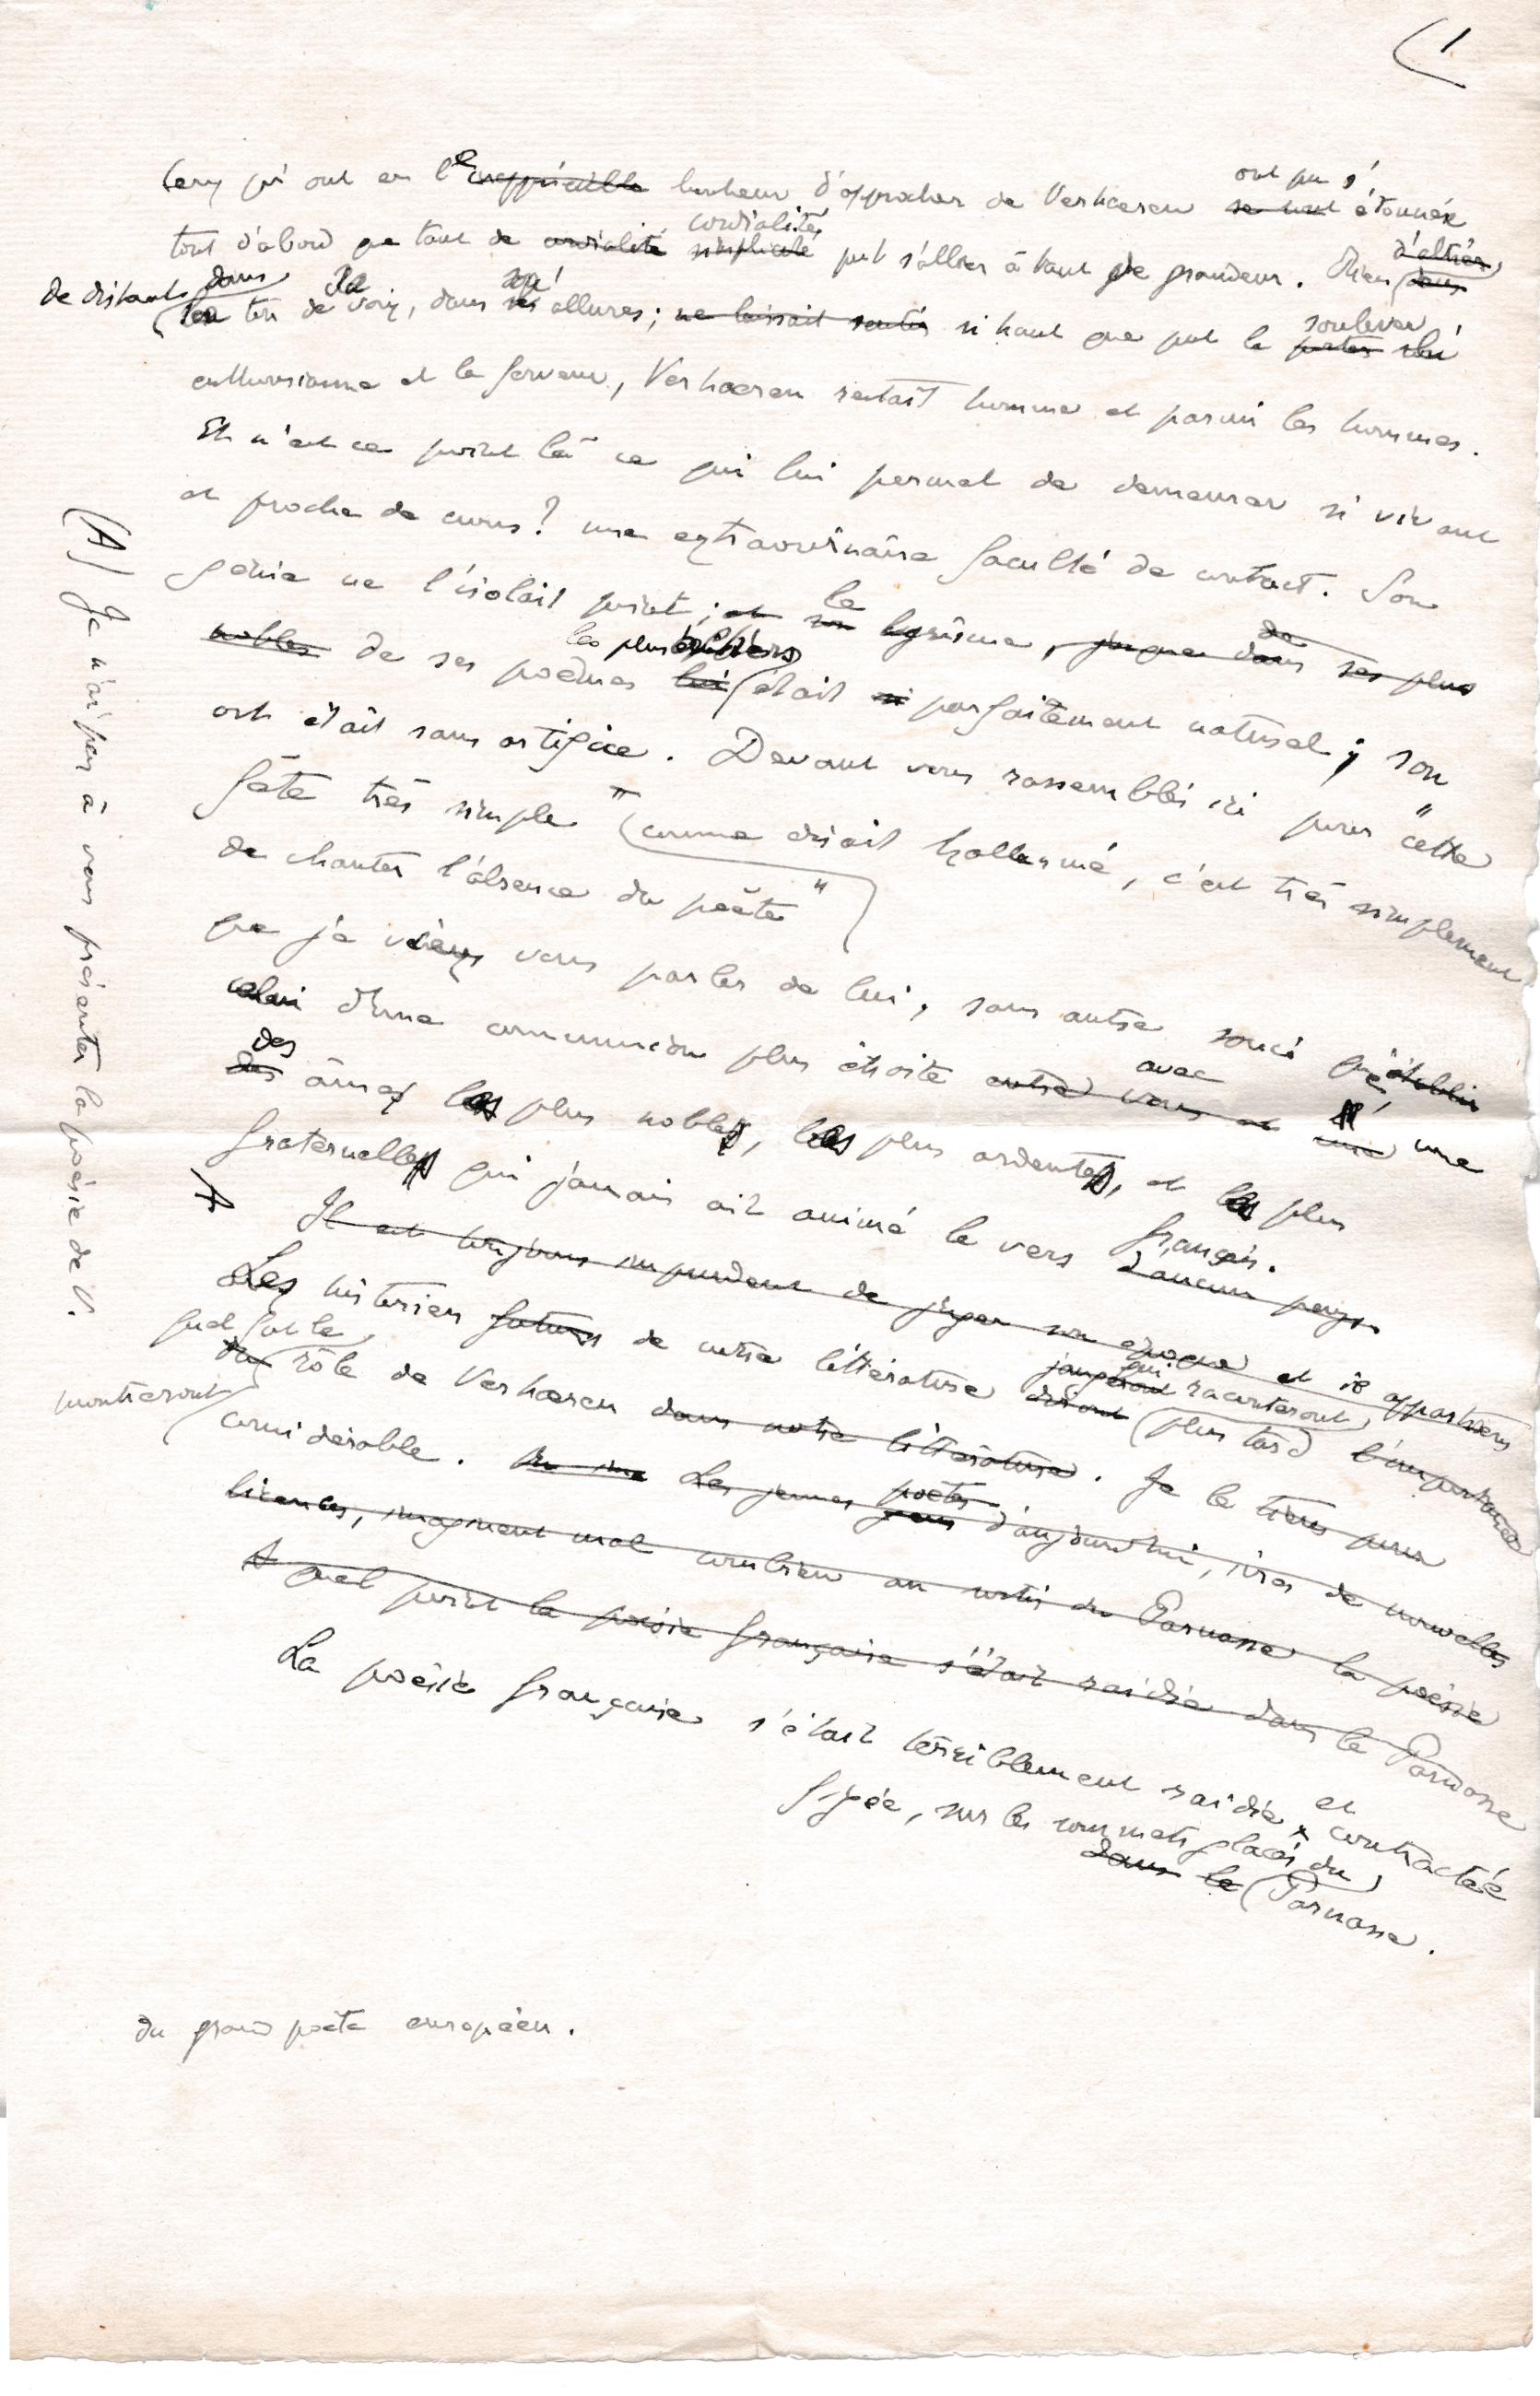 1
ont pu s'
Ceux qui ont eu le inappréciable bonheur d'approcher de Verhaeren se sont étonner
cordialité
tout d'abord que tant de cordialité simplicité pût s'allier à tant de grandeur. Rien d'altier dans
de distant dans
le ton de la voix, dans ses allures; ne laissait sentir si haut que pût le porter soulever
enthousiasme et la ferveur, Verhaeren restait homme et parmi les hommes.
Et n'est ce point là ce qui lui permet de demeurer si vivant
et proche de nous? une extraordinaire faculté de contact. Son
génie ne l'isolait point; et son le lyrisme, jusque dans de ses plus
les plus altiers
nobles de ses poèmes lui était si parfaitement naturel; son
art était sans artifice. Devant vous rassemblés ici pour "cette
fête très simple" (comme disait Mallarmé, c'est très simplement
de chanter l'absence du poète"
que je viens vous parler de lui, sans autre souci que d'établir
celui d'une communion plus étroite entre vous et avec une
des
des âmes les plus nobles, les plus ardentes, et les plus
fraternelles qui jamais ait animé le vers français.
d'aucun pays.
Il est toujours imprudent de juger son époque et il appartient
Les historiens futurs de notre littérature diront jaugeront qui raconteront plus tard l'importance
quel fut le
du rôle de Verhaeren dans notre littérature. Je le tiens pour
montreront
considérable. Les jeunes gens poètes d'aujourd'hui, ivres de nouvelles
licences, imaginent mal combien au sortir du Parnasse la poésie
A quel point la poésie française s'était raidie dans le Parnasse
La poésie française s'était terriblement raidie et contractée
figée, sur les sommets glacés du
dans le Parnasse.
(A) Je n'ai pas à vous présenter la poésie de V.
du grand poète européen.